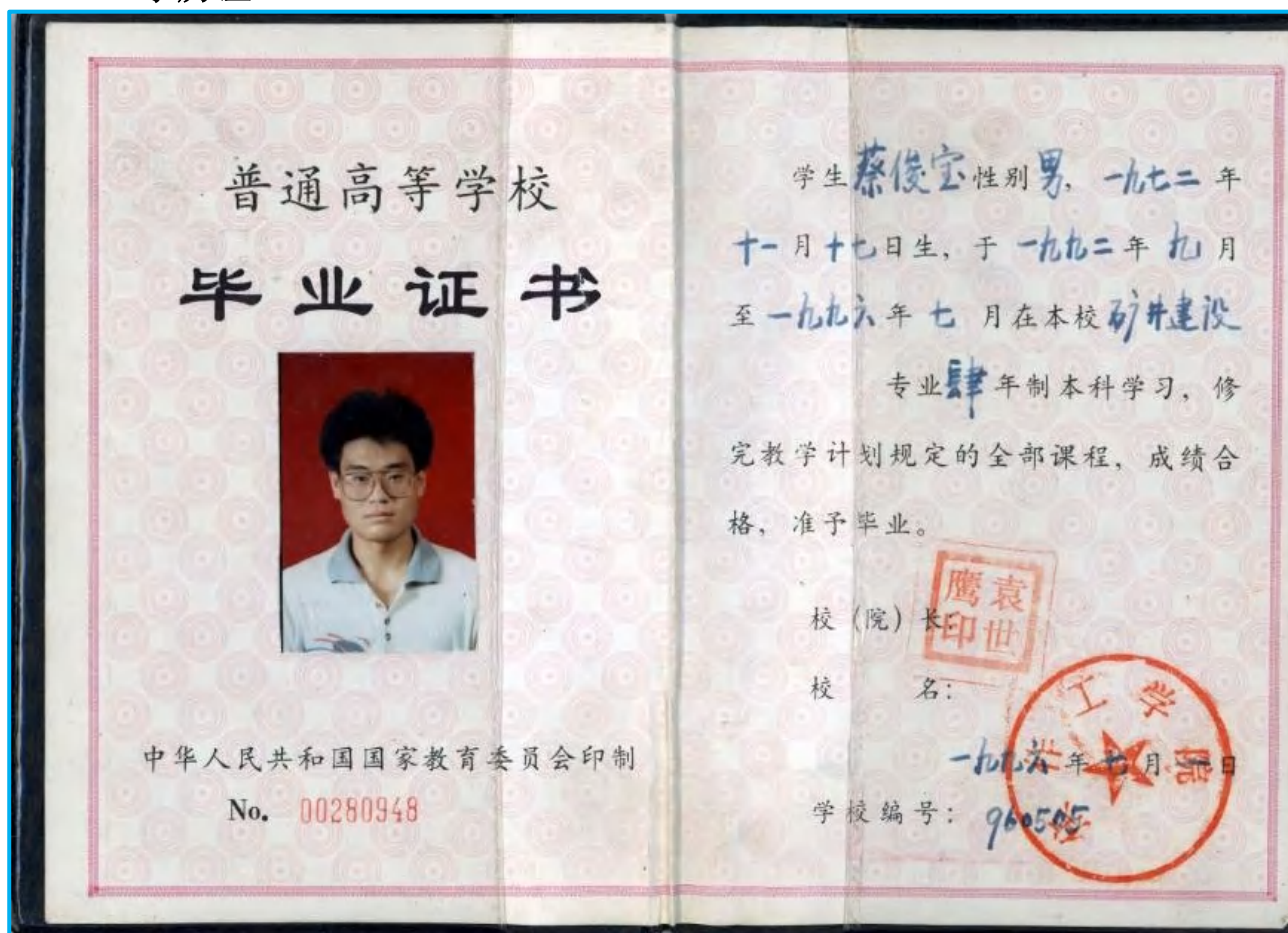 普通高等学校
毕业证书
中华人民共和国国家教育委员会印制
No. 00280948
学生蔡俊宝性别男，一九七二年
十一月十七日生，于一九九二年九月
至一九九六年七月在本校矿井建设
专业肆年制本科学习，修
完教学计划规定的全部课程，成绩合
格，准予毕业。
校（院）长：
袁世鹰印
校名：
工学院
一九九六年七月一日
学校编号：960505